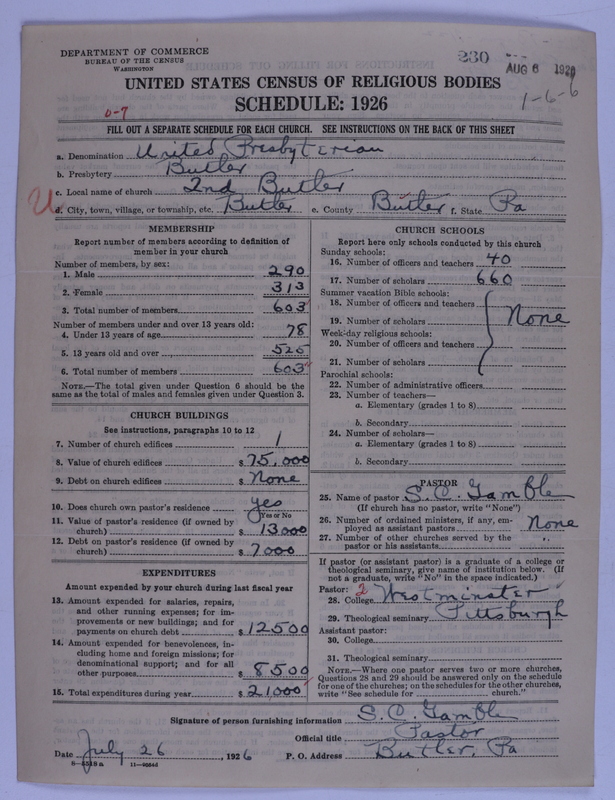 DEPARTMENT OF COMMERCE
BUREAU OF THE CENSUS
WASHINGTON
230
AUG 6 1926
1-6-6
UNITED STATES CENSUS OF RELIGIOUS BODIES
SCHEDULE: 1926
0-7
FILL OUT A SEPARATE SCHEDULE FOR EACH CHURCH. SEE INSTRUCTIONS ON THE BACK OF THIS SHEET
a. Denomination United Presbyterian
b. Presbytery Butler
c. Local name of church 2nd Butler
U
d. City, town, village, or township, etc. Butler e. County Butler f. State Pa
MEMBERSHIP
Report number of members according to definition of
member in your church
Number of members, by sex:
1. Male 290
2. Female 313
3. Total number of members 603
Number of members under and over 13 years old:
4. Under 13 years of age 78
5. 13 years old and over 525
6. Total number of members 603
NOTE.—The total given under Question 6 should be the
same as the total of males and females given under Question 3.
CHURCH BUILDINGS
See instructions, paragraphs 10 to 12
7. Number of church edifices 1
8. Value of church edifices $ 75,000
9. Debt on church edifices $ None
10. Does church own pastor's residence yes
Yes or No
11. Value of pastor's residence (if owned by
church) $ 13000
12. Debt on pastor's residence (if owned by
church) $ 7000
EXPENDITURES
Amount expended by your church during last fiscal year
13. Amount expended for salaries, repairs,
and other running expenses; for im-
provements or new buildings; and for
payments on church debt $ 12500
14. Amount expended for benevolences, in-
cluding home and foreign missions; for
denominational support; and for all
other purposes $ 8500
15. Total expenditures during year $ 21,000
CHURCH SCHOOLS
Report here only schools conducted by this church
Sunday schools:
16. Number of officers and teachers 40
17. Number of scholars 660
Summer vacation Bible schools:
18. Number of officers and teachers
19. Number of scholars None
Week-day religious schools:
20. Number of officers and teachers
21. Number of scholars
Parochial schools:
22. Number of administrative officers
23. Number of teachers—
a. Elementary (grades 1 to 8)
b. Secondary
24. Number of scholars—
a. Elementary (grades 1 to 8)
b. Secondary
PASTOR
25. Name of pastor S. C. Gamble
(If church has no pastor, write "None")
26. Number of ordained ministers, if any, em-
ployed as assistant pastors None
27. Number of other churches served by the
pastor or his assistants "
If pastor (or assistant pastor) is a graduate of a college or
theological seminary, give name of institution below. (If
not a graduate, write "No" in the space indicated.)
Pastor: 2
28. College Westminster
29. Theological seminary Pittsburgh
Assistant pastor:
30. College
31. Theological seminary
NOTE.—Where one pastor serves two or more churches,
Questions 28 and 29 should be answered only on the schedule
for one of the churches; on the schedules for the other churches,
write "See schedule for church."
Signature of person furnishing information S. C. Gamble
Official title Pastor
Date July 26, 1926 P. O. Address Butler, Pa
8-5518a 11-9664d